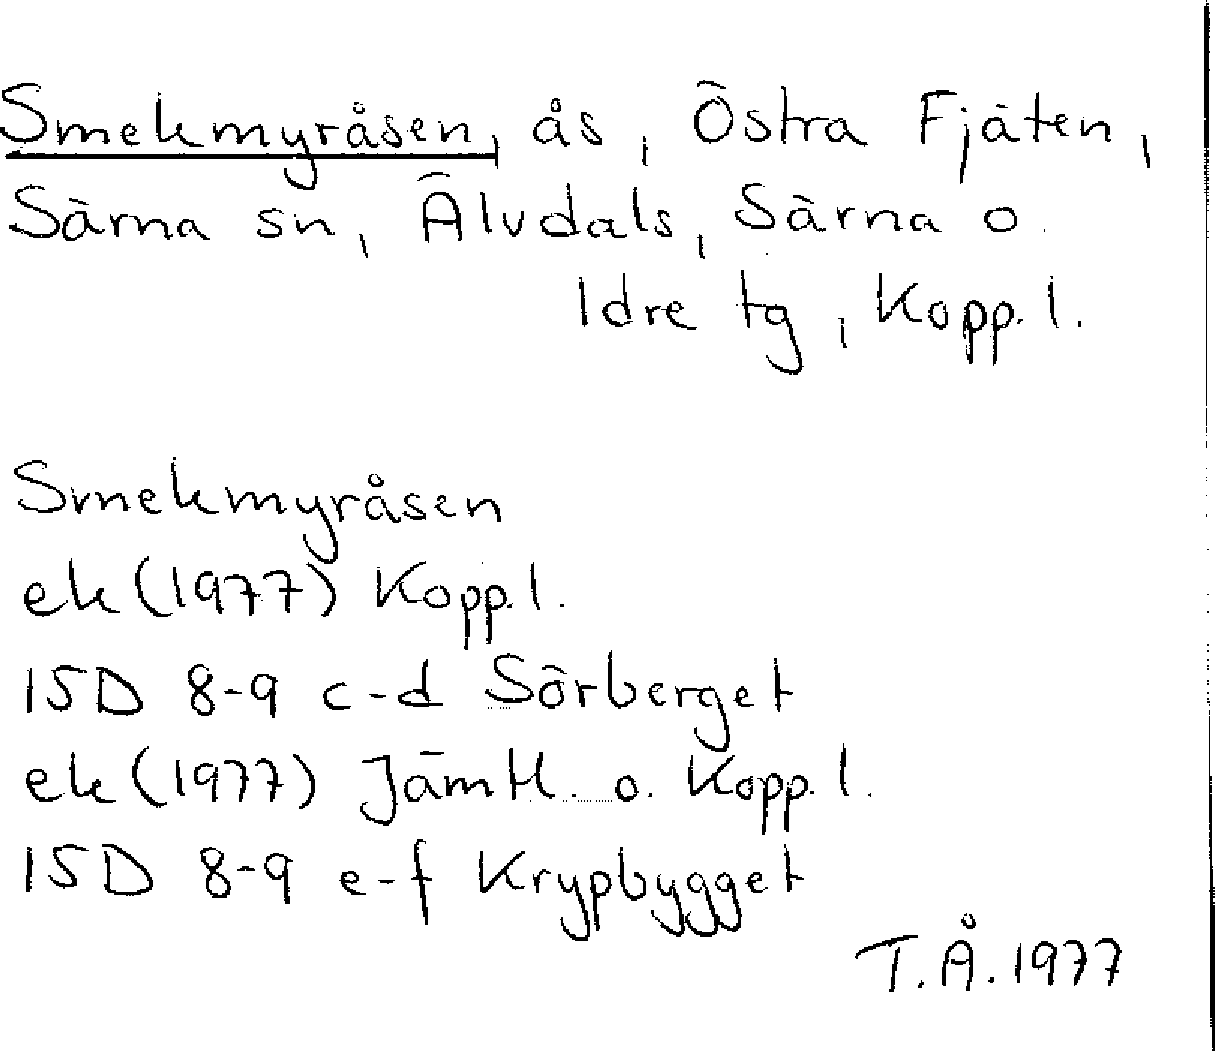 Smekmyråsen, ås, Östra Fjäten,
Särna sn, Älvdals, Särna o.
Idre tg, Kopp. l.
Smekmyråsen
ek (1977) Kopp. l.
15D 8-9 c-d Sörberget
ek (1977) Jämtl. o. Kopp. l.
15D 8-9 e-f Krypbygget
T.Å. 1977